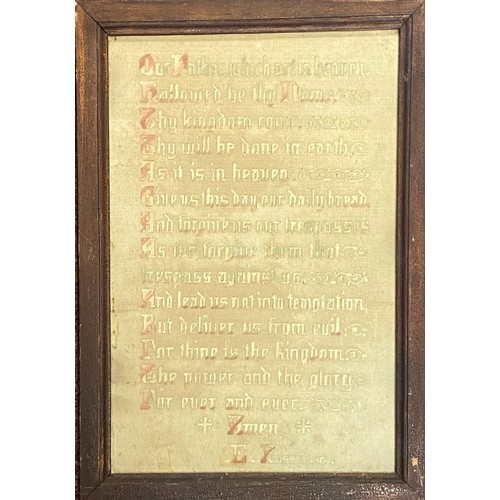 Our Father which art in heaven,
Hallowed be thy Name.
Thy kingdom come.
Thy will be done in earth,
As it is in heaven.
Give us this day our daily bread,
And forgive us our trespasses
As we forgive them that
trespass against us.
And lead us not into temptation,
But deliver us from evil
For thine is the kingdom
The power and the glory
For ever and ever.
Amen